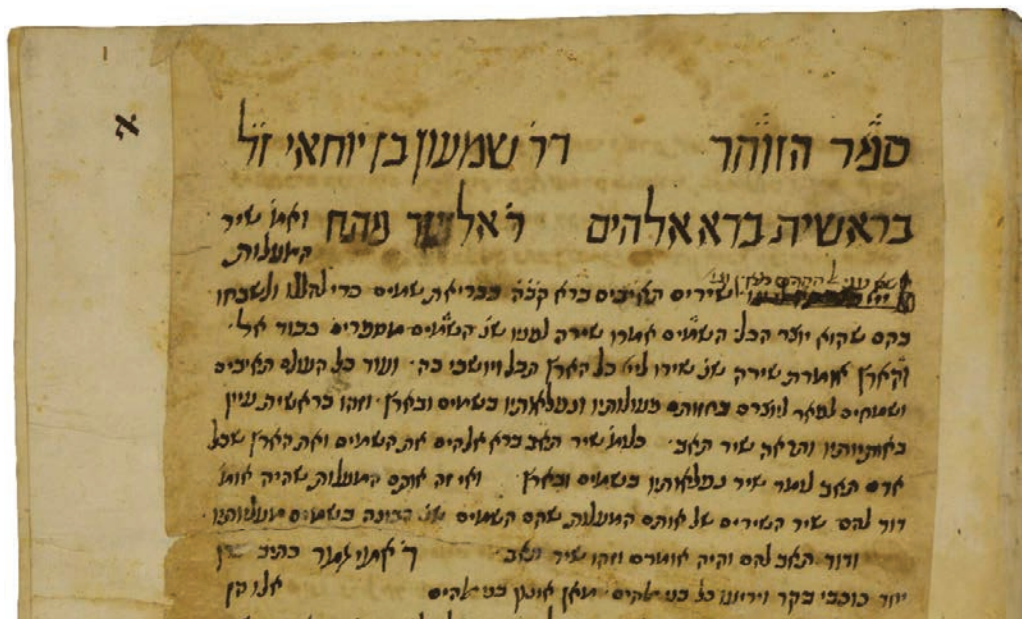 א
ספר הזוהר דר' שמעון בן יוחאי ז"ל
בראשית ברא אלהים ר' אלעזר פתח ואמ' שיר
המעלות
שירים תאיבים ברא קב"ה בבריאת שמים כדי להללו ולשבחו
בהם שהוא יוצר הכל. השמים אומרי שירה לפניו שנ' השמים מספרים כבוד אל.
והארץ אומרת שירה שנ' שירו ליי' כל הארץ תבל ויושבי בה. ועוד כל העולם תאיבים
ושמחים לפאר ליוצרם בחזותם פעולותיו ונפלאותיו בשמים ובארץ. וזהו בראשית עיין
באותיותיו ותראה שיר תאב. כלומ' שיר תאב ברא אלהים את השמים ואת הארץ שכל
אדם תאב לומר שיר בפלאותיו בשמים ובארץ ואי זה אותם המעלות שהיה אומ'
דוד להם שיר השירים של אותם המעלות שהם השמים שנ' הבונה בשמים מעלותיו
ודוד תאב להם והיה אומרם וזהו שיר תאב. ר' אמר כתיב ברן
יחד כוכבי בקר ויריעו כל בני אלהים. מאן אינון בני אלהים אלו הן